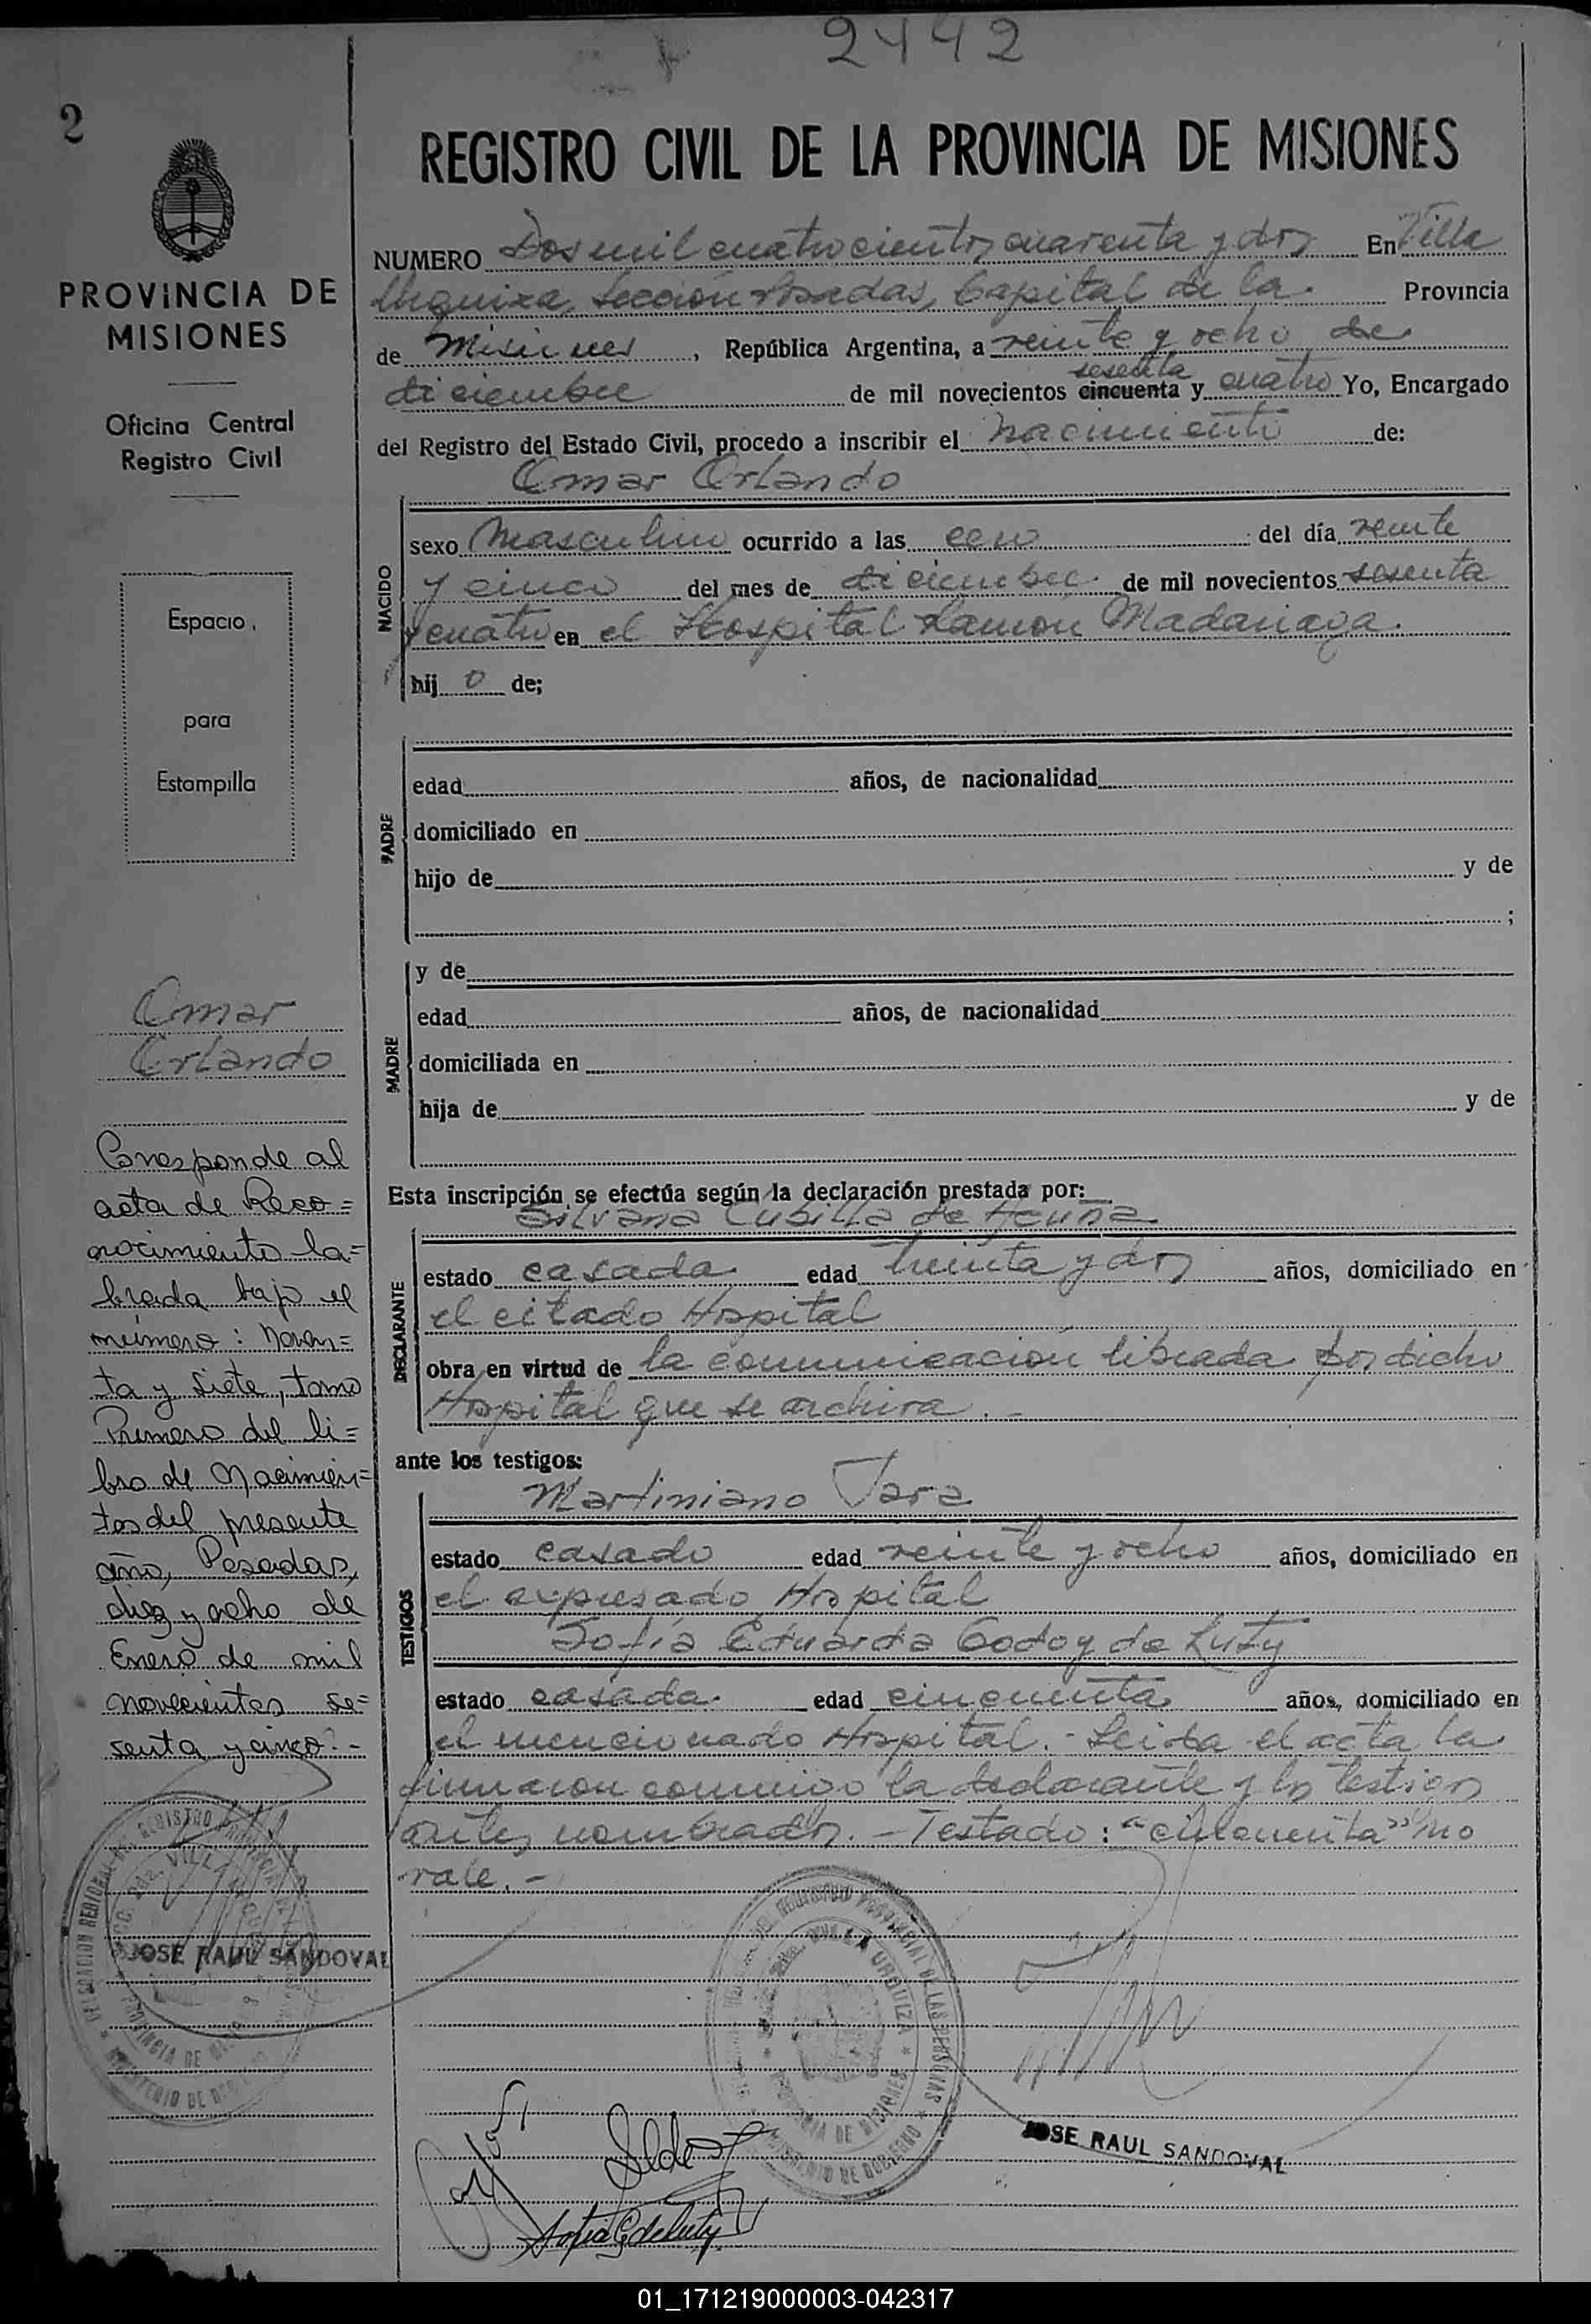 2442
2
REGISTRO CIVIL DE LA PROVINCIA DE MISIONES
PROVINCIA DE
MISIONES
Oficina Central
Registro Civil
Espacio
para
Estampilla
NUMERO Dos mil cuatrocientos cuarenta y dos En Villa
Urquiza, Sección Posadas, Capital de la Provincia
de Misiones, República Argentina, a veinte y ocho de
sesenta
diciembre de mil novecientos cincuenta y cuatro Yo, Encargado
del Registro del Estado Civil, procedo a inscribir el nacimiento de:
Omar Orlando
NACIDO
sexo Masculino ocurrido a las cero del día veinte
y cinco del mes de diciembre de mil novecientos sesenta
y cuatro en el Hospital Ramón Madariaga.
hij o de;
PADRE
edad años, de nacionalidad
domiciliado en
hijo de y de
;
MADRE
y de
edad años, de nacionalidad
domiciliada en
hija de y de
Esta inscripción se efectúa según la declaración prestada por:
DECLARANTE
Silvana Cubilla de
estado casada edad treinta y dos años, domiciliado en
el citado Hospital
obra en virtud de la comunicación librada por dicho
Hospital que se archiva.-
ante los testigos:
TESTIGOS
Martiniano Jara
estado casado edad veinte y ocho años, domiciliado en
el expresado Hospital
Sofía Eduarda Godoy de Luty
estado casada edad cincuenta años, domiciliado en
el mencionado Hospital.- Leida el acta la
firmaron conmigo la declarante y los testigos
antes nombrados.- Testado: "cincuenta" no
vale.-
Omar
Orlando
Corresponde al
acta de Reco=
nocimiento la=
brada bajo el
número: Noven=
ta y Siete, tomo
Primero del li=
bro de Nacimien=
tos del presente
año, Posadas,
diez y ocho de
Enero de mil
novecientos se=
senta y cinco.-
JOSE RAUL SANDOVAL
VILLA URQUIZA
PROVINCIA DE MISIONES
MINISTERIO DE GOBIERNO
JOSE RAUL SANDOVAL
Sofia G de Luty
01_171219000003-042317